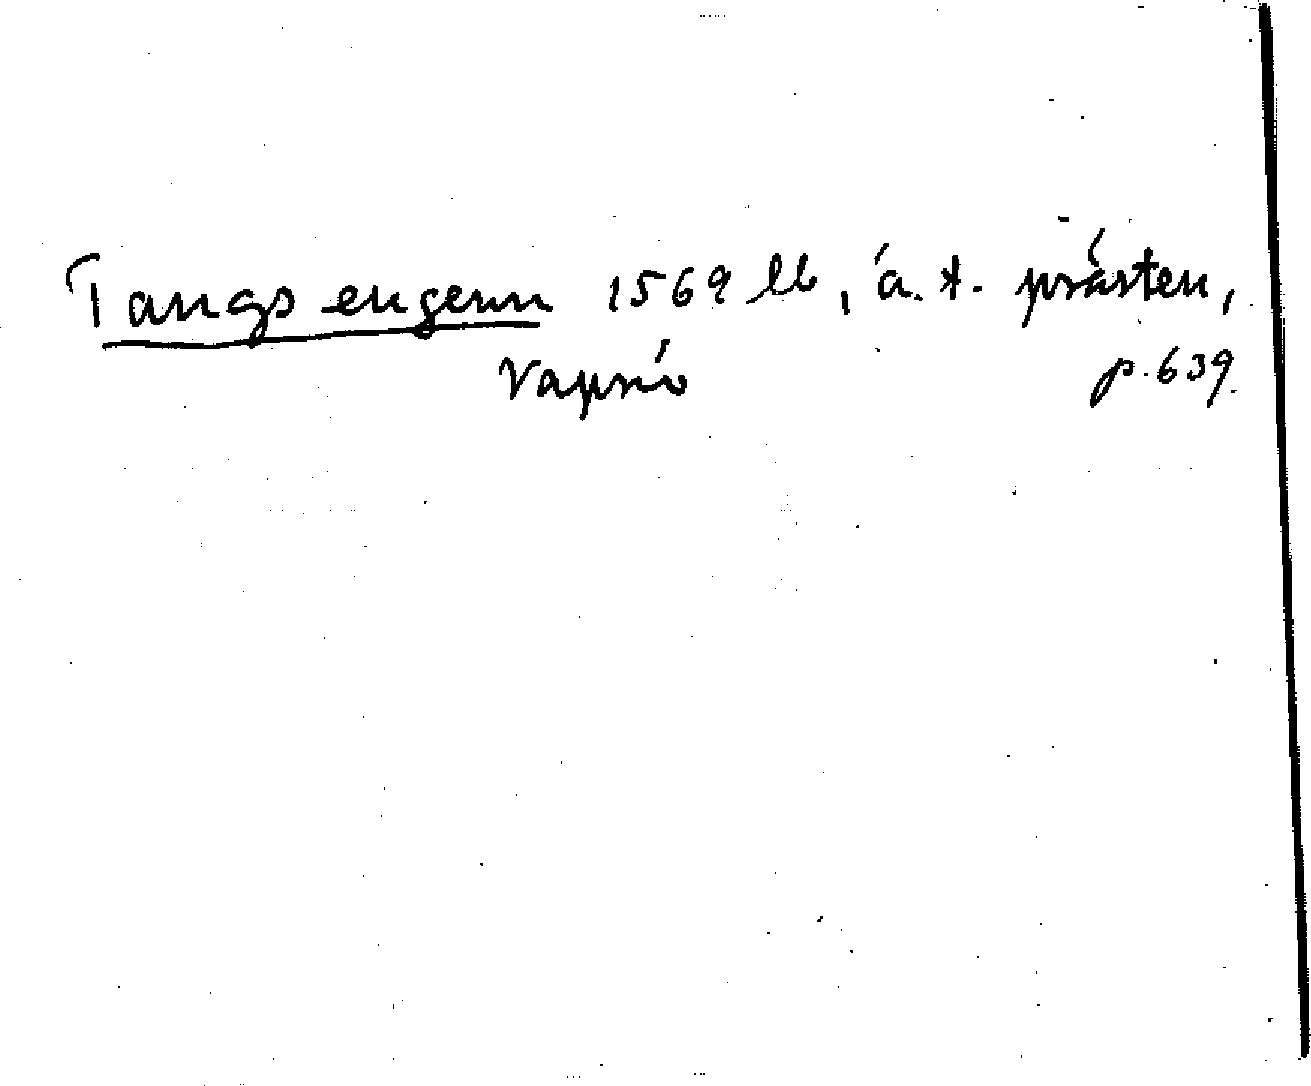 Tangs engenn 1569 lb, å. t. prästen,
Vapnö p. 639.